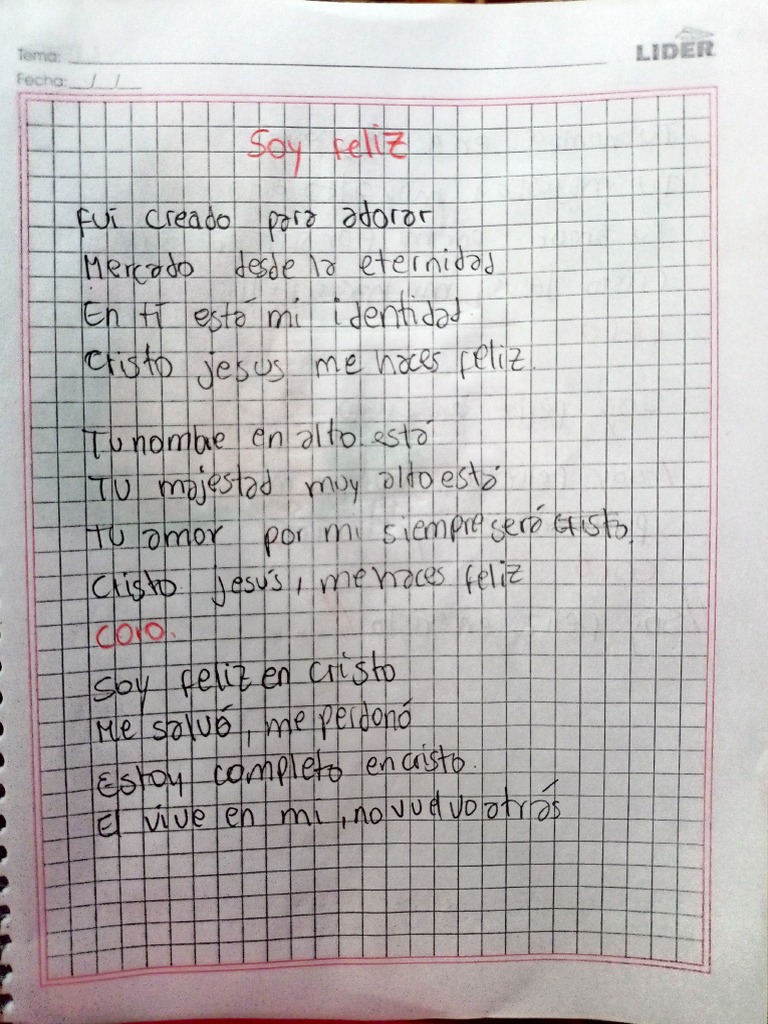 Tema:
LIDER
Fecha: / /
Soy feliz
Fui creado para adorar
Mercado desde la eternidad
En ti está mi identidad
Cristo jesus me haces feliz.
Tu nombre en alto está
Tu majestad muy alto está
Tu amor por mi siempre será cristo
Cristo jesús, me haces feliz
Coro.
Soy feliz en cristo
Me salvó, me perdonó
Estoy completo en cristo.
El vive en mi, no vuelvo atrás